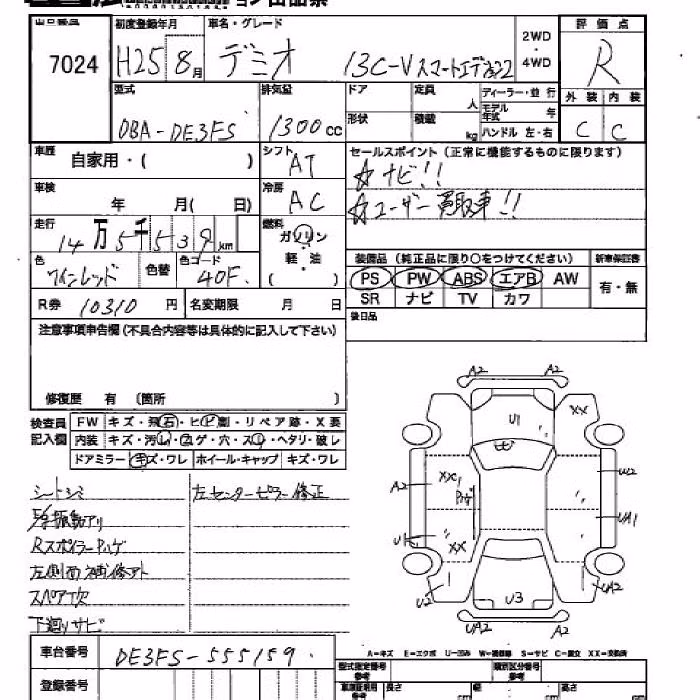 初度登録年月 車名・グレード 2WD・4WD 評価点
7024 H25 8月 デミオ 13C-V スマートエディション2 R
型式 排気量 ドア 定員 人 ディーラー・並行 外装 内装
形状 積載 kg モデル年式 年
DBA-DE3FS 1300cc ハンドル 左・右 C C
車歴 自家用・( ) シフト AT セールスポイント(正常に機能するものに限ります)
☆ナビ!!
車検 年 月( 日) 冷房 AC ☆ユーザー買取車!!
走行 14万5千539km 燃料 ガソリン・軽・油 ( )
装備品(純正品に限り○をつけてください) 新車保証書
色 ワインレッド 色替 色コード 40F PS PW ABS エアB AW 有・無
SR ナビ TV カワ
R券 10310円 名変期限 月 日 後日品
注意事項申告欄(不具合内容等は具体的に記入して下さい)
修復歴 有 〔箇所 〕
検査員記入欄 FW キズ・飛石・ヒビ割・リペア跡・X要
内装 キズ・汚れ・コゲ・穴・スレ・ヘタリ・破レ
ドアミラー キズ・ワレ ホイール・キャップ キズ・ワレ
シートシミ 左センターピラー修正
振動アリ
Rスポイラーハゲ
左側面補修アト
スペア欠
下廻リサビ
A2 A2
U1 XX
A2 XX U2
ハゲ
U1 XX UA1
U2 U3 UA2
UA2 A2
A-キズ E-エクボ U-凹み W-補修跡 S-サビ C-腐食 XX-交換済
車台番号 DE3FS-555159
型式指定番号 類別区分番号
登録番号 長さ cm 幅 cm 高さ cm